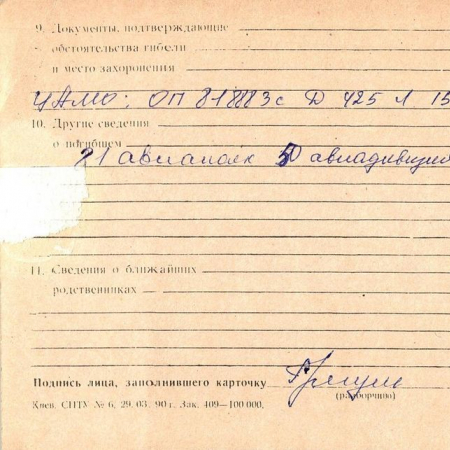 9. Документы, подтверждающие
обстоятельства гибели
и место захоронения
ЦАМО: ОП 818883с Д 425 Л 15
10. Другие сведения
о погибшем
21 авиаполк 50 авиадивизио
11. Сведения о ближайших
родственниках
Подпись лица, заполнившего карточку
(разборчиво)
Киев. СПТУ № 6. 29. 03. 90 г. Зак. 409—100 000.